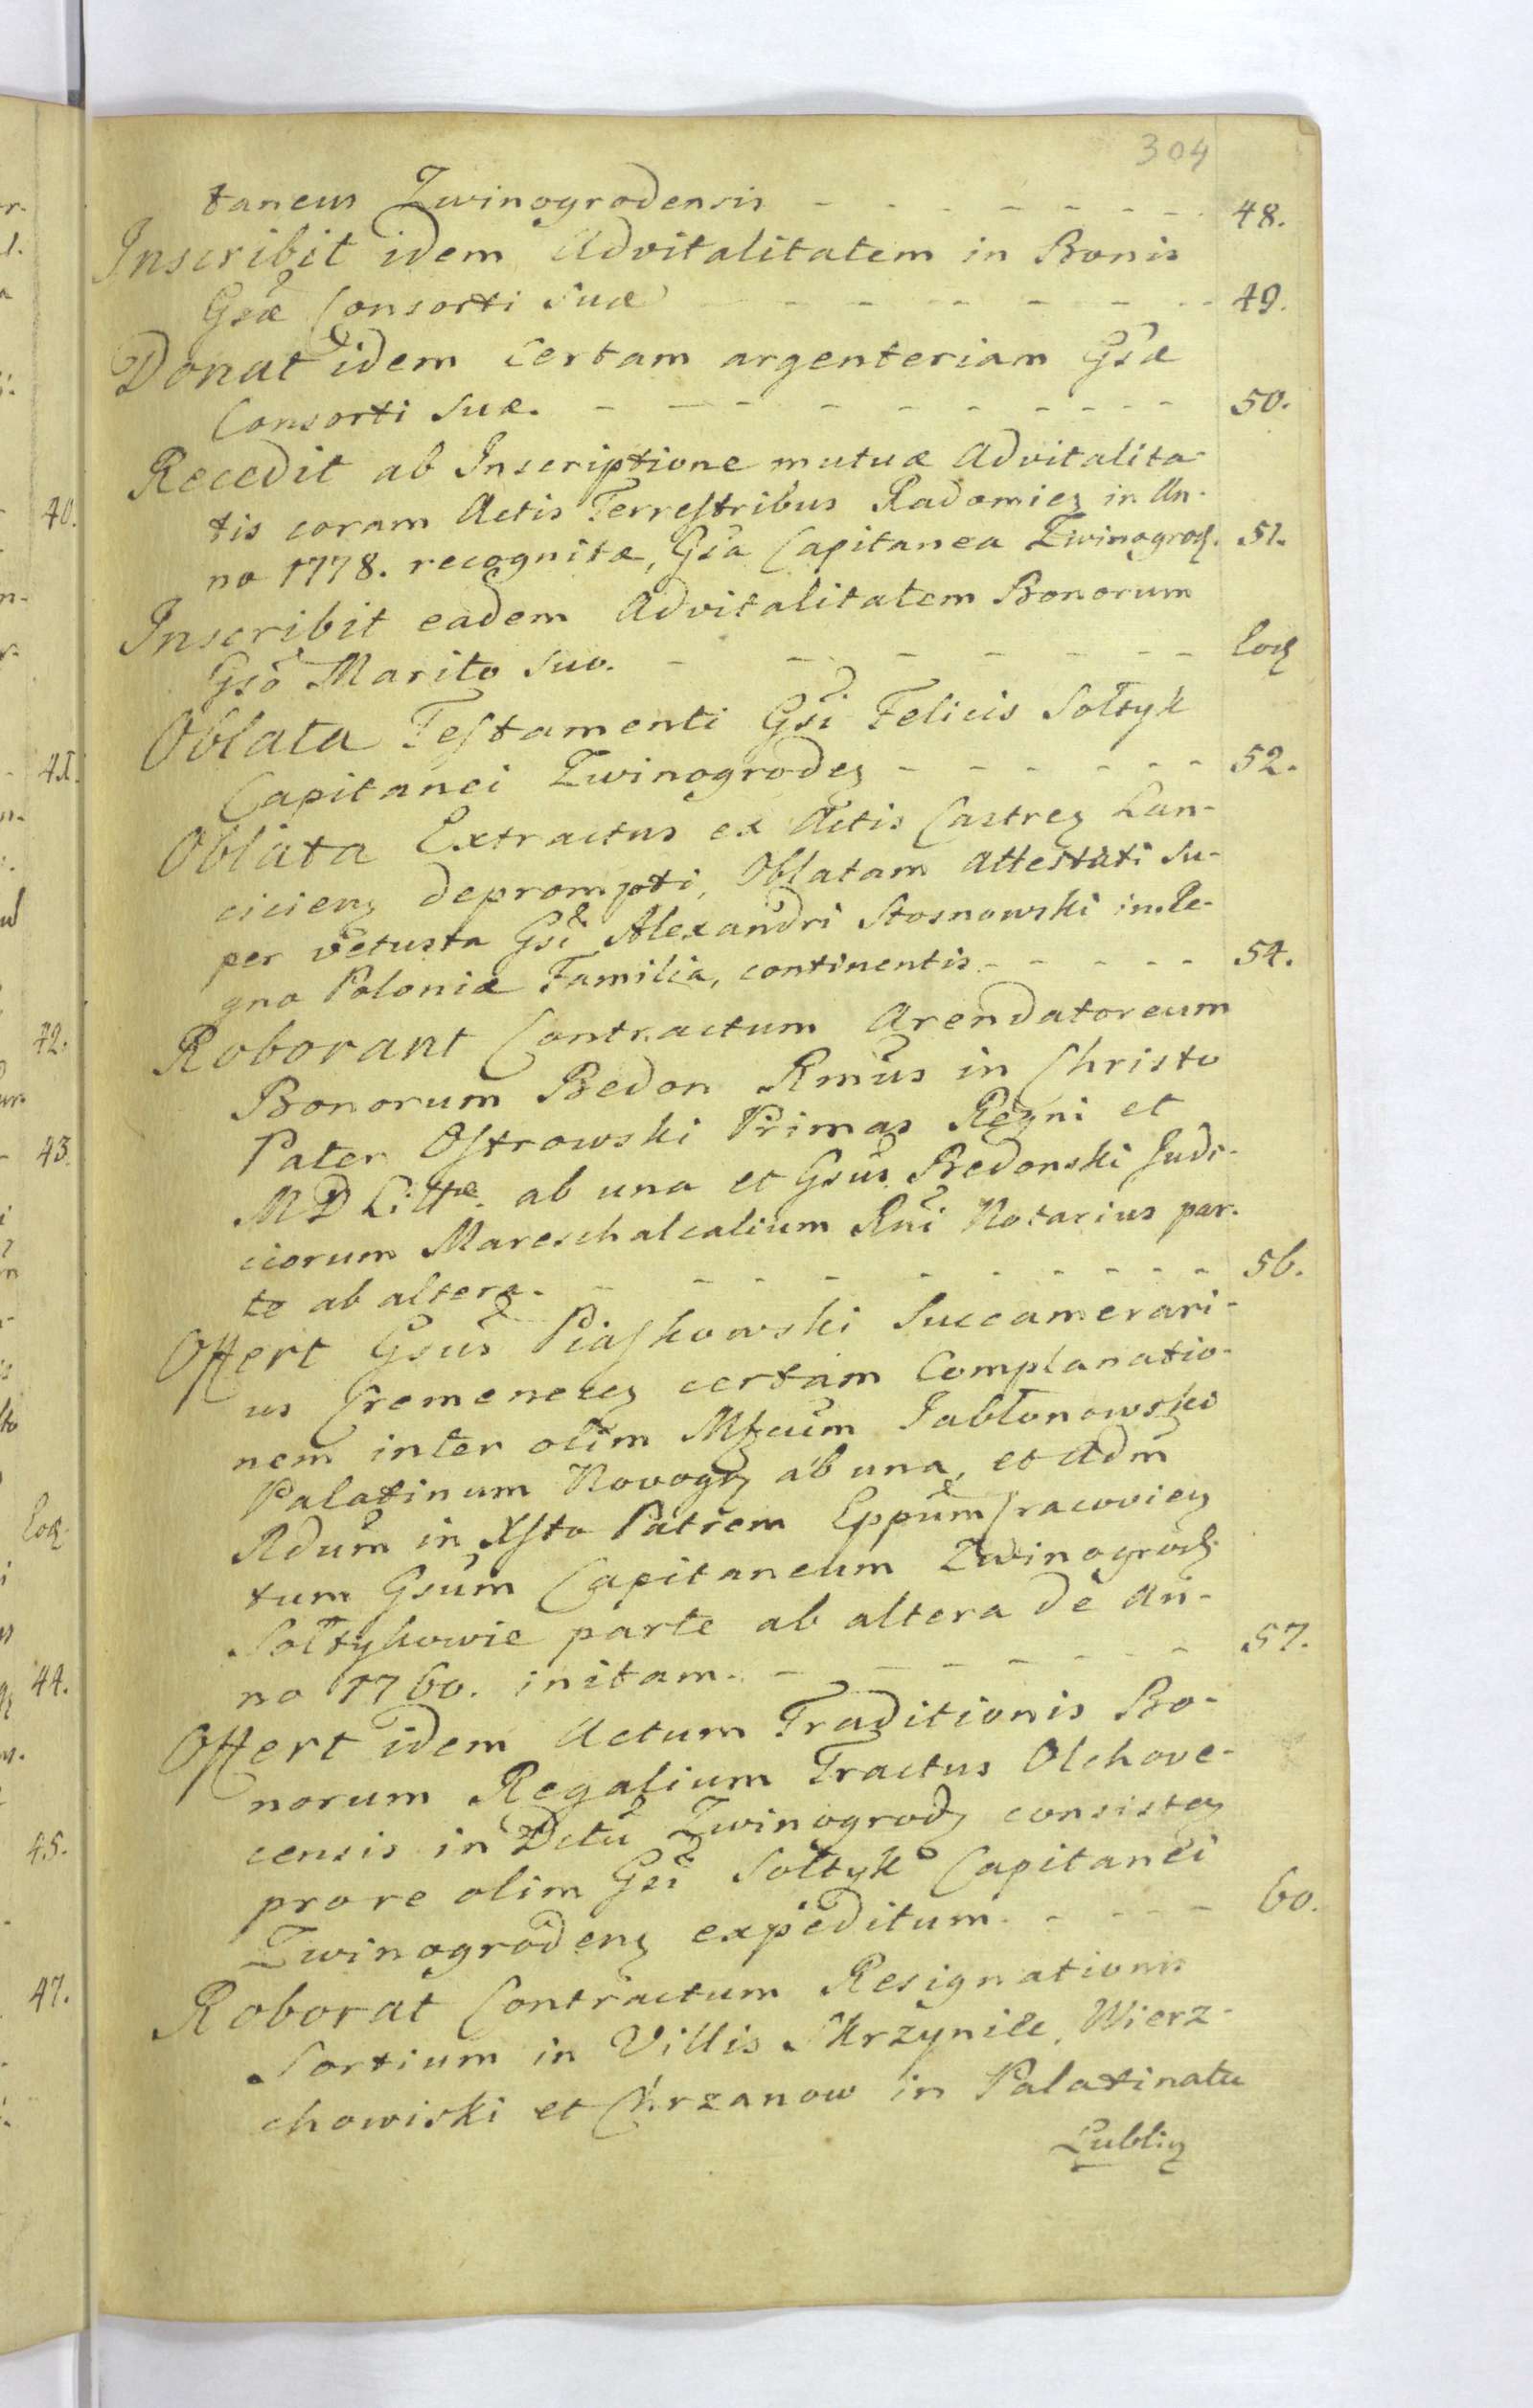 304
taneus Zwinogrodensis - - - - - - - - 48.
Inscribit idem Advitalitatem in Bonis
Gsæ Consorti Suæ - - - - - - - - 49.
Donat idem certam argenteriam Gsæ
Consorti Suæ. - - - - - - - - - - 50.
Recedit ab Inscriptione mutuæ Advitalita-
tis coram Actis Terrestribus Radomieȝ in An-
no 1778. recognitæ, Gsa Capitanea Zwinogrodȝ. 51.
Inscribit eadem Advitalitatem Bonorum
Gsõ Marito suo. - - - - - - - - Eodȝ
Oblata Testamenti Gsi Felicis Sołtyk
Capitanei Zwinogrodeȝ - - - - - - 52.
Oblata Extractus ex Actis Castreȝ Lan-
cicieȝ deprompti, Oblatam attestati Su-
per vetusta Gsi Alexandri Stosnowski in Re-
gno Poloniæ Familia, continentis - - - - - 54.
Roborant Contractum Arendatoreum
Bonorum Bedon Rmus in Christo
Pater Ostrowski Primas Regni et
M D Littæ. ab una et Gsus Bedonski Judi-
ciorum Mareschalcalium Rni Notarius par-
te ab altera. - - - - - - - - - 56.
Offert Gsus Piaskowski Succamerari-
us Cremeneceȝ certam Complanatio-
nem inter olim Mfcum Jabłonowski
Palatinum Novogrȝ ab una, et Adm
Rdum in Xsto Patrem Eppum Cracovieȝ
tum Gsum Capitaneum Zwinogrodȝ
Sołtykowie parte ab altera de An-
no 1760. initam. - - - - - - - 57.
Offert idem Actum Traditionis Bo-
norum Regalium Tractus Olchove-
censis in Dctu Zwinogrodȝ consisteȝ
pro re olim Gsi Sołtyk Capitanei
Zwinogrodenȝ expeditum. - - - - 60.
Roborat Contractum Resignationis
Sortium in Villis Skrzynice, Wierz-
chowiski et Chrzanow in Palatinatu
Lubliȝ
40.
41.
42.
43.
Eodȝ
44.
45.
47.